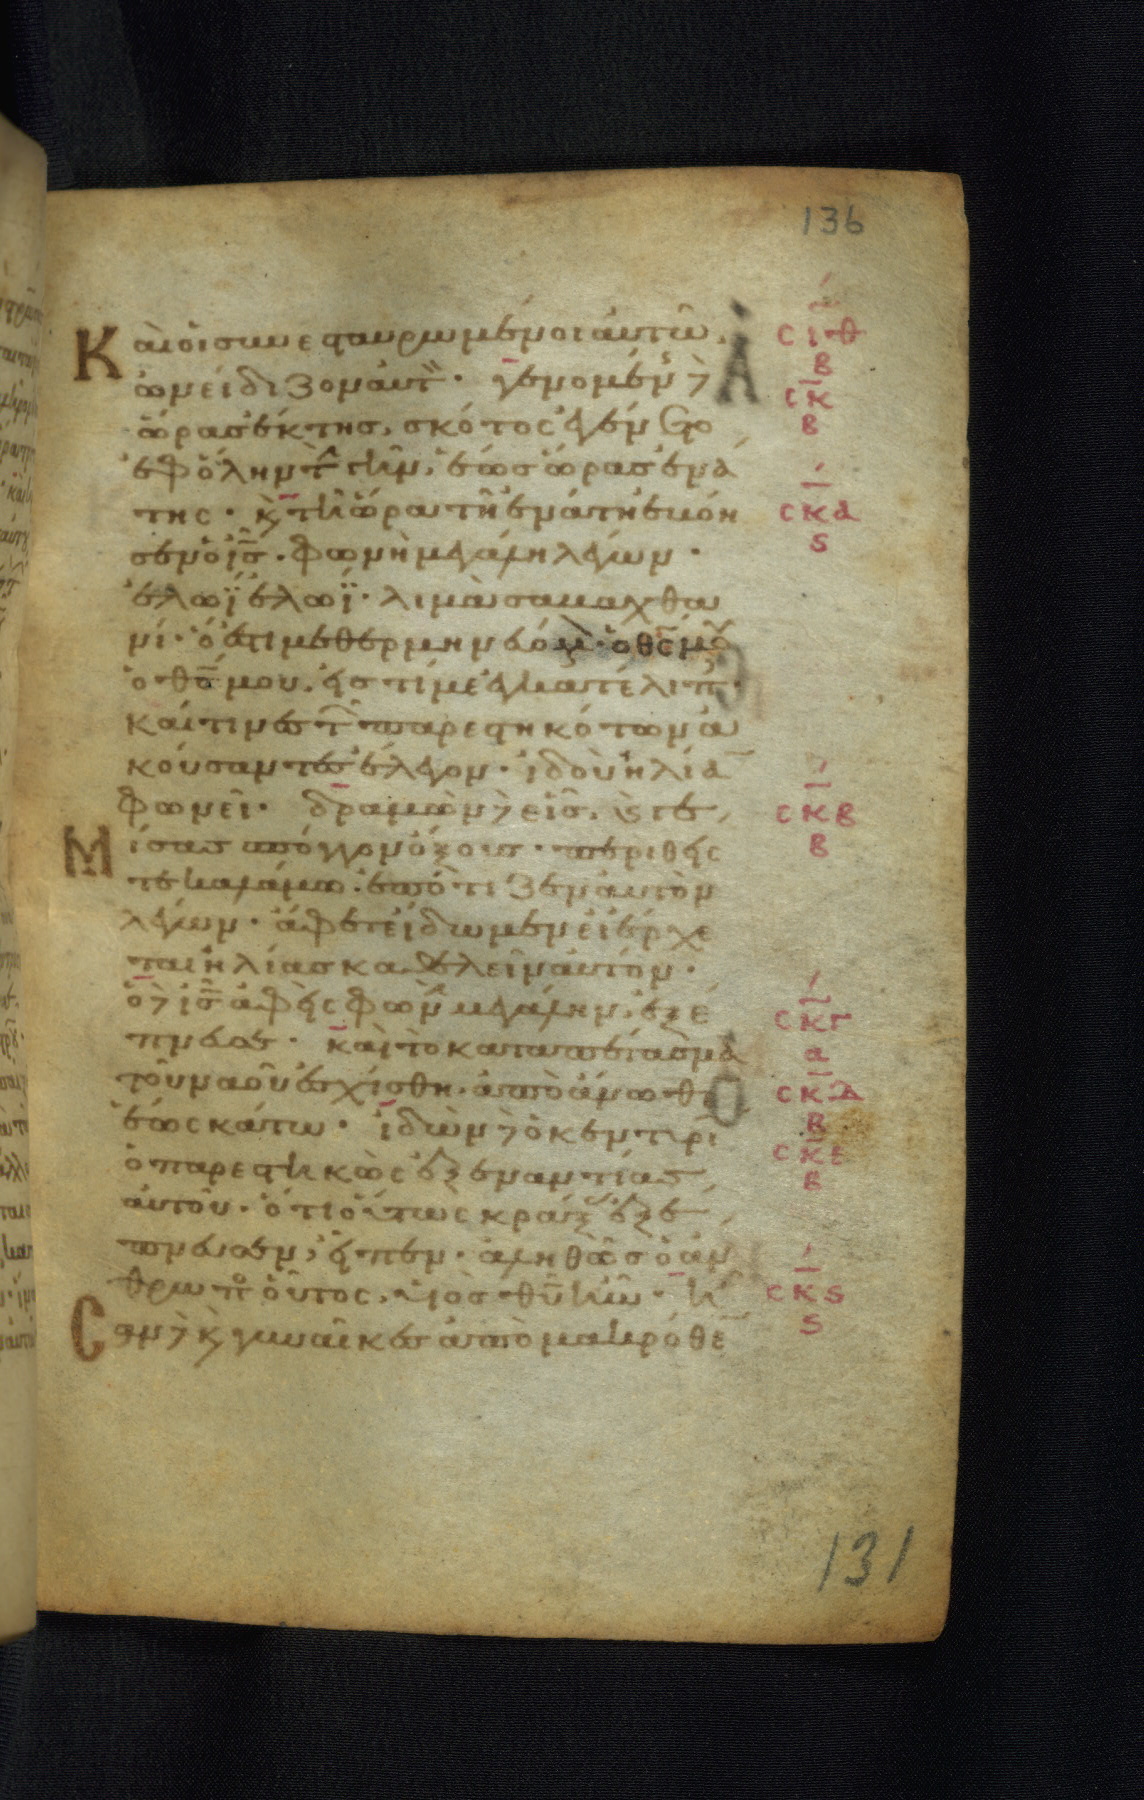 136
Καὶ οἱ συνεσταυρωμένοι αὐτῶ,
ὠνείδιζον αὐτ. γενομένης δὲ
ὥρας ἕκτης, σκότος ἐγένετο
ἐφ ὅλην τ γῆν, ἕως ὥρας ἐνά
της. κ τῆ ὥρα τῆ ἐνάτη ἐβόη
σεν ὁ ις. φωνὴ μεγάλη λέγων.
ἐλωϊ ἐλωϊ. λιμὰ σαβαχθα
νι. ὅ ἐστι μεθερμηνευόμ. ὁ θς μου
ὁ θς μου. εἰς τί με ἐγκατέλιπ.
καί τινες τ παρεστηκότων ἀ
κούσαντες ἔλεγον. ἰδοὺ ἠλία
φωνεῖ. δραμὼν δὲ εἷς, κ γε
μίσας σπόγγον ὄξους. περιθείς
τε καλάμω. ἐπότιζεν αὐτὸν
λέγων. ἄφετε ἴδωμεν εἰ ἔρχε
ται ἠλίας καθελεῖν αὐτόν.
ὁ δὲ ις ἀφεὶς φων μεγάλην ἐξέ
πνευσε. καὶ τὸ καταπέτασμα
τοῦ ναοῦ ἐσχίσθη. ἀπὸ ἄνωθ
ἕως κάτω. ἰδὼν δὲ ὁ κεντυρί
ὁ παρεστηκὼς ἐξ ἐναντίας
αὐτοῦ. ὅτι οὕτως κράξας ἐξέ
πνευσεν, εἶπεν. ἀληθῶς ὁ ἄν
θρωπος οὗτος, υἱὸς θυ ἦν. ἦ
σαν δὲ κ γυναῖκες ἀπὸ μακρόθε
σιθ
β
σκ
β
σκα
ς
σκβ
β
σκγ
α
σκδ
β
σκε
β
σκς
ς
131